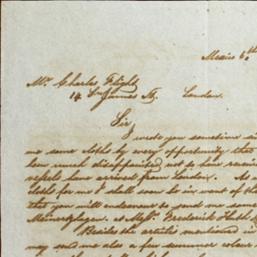 Mexico 6th
Mr. Charles Flight
14 St James St. London
Sir
I wrote you sometime si
me some cloths by every opportunity that
been much disappointed not to have receive
vessels have arrived from London. As
cloths for me I shall soon be in want of the
that you will endeavour to send me some
at Messrs. Frederick Huth &
Besides the articles mentioned in
may send me also a few summer colour